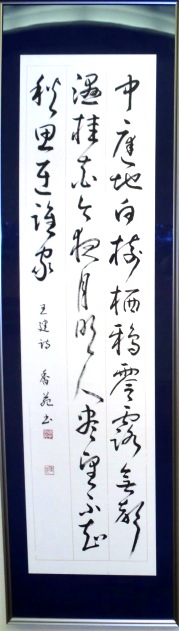 中庭地白樹栖鴉零露無聲
濕桂花今夜月明人盡望不知
秋思在誰家
王建詩 香苑書